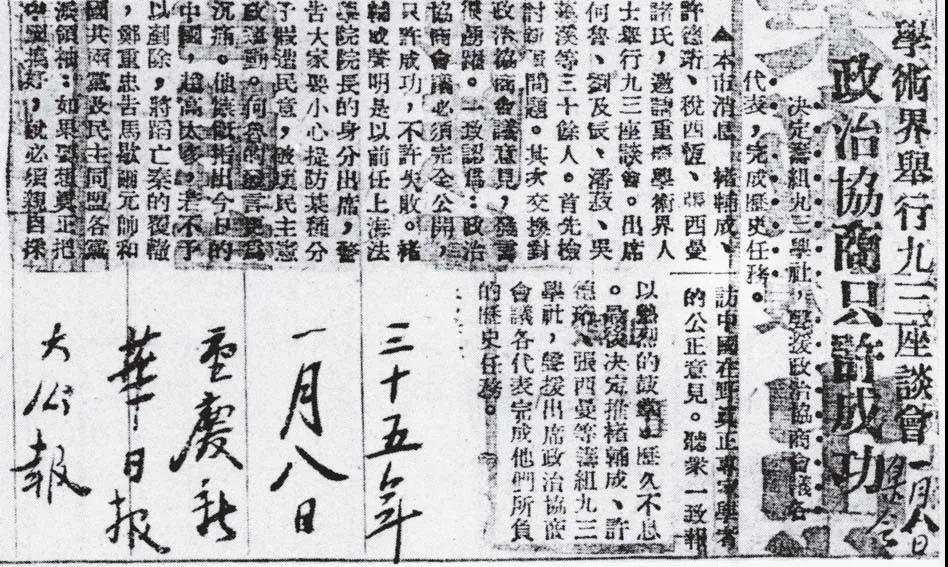 學術界舉行九三座談會
一月八日
政治協商只許成功
決定籌組九三學社,聲援政治協商會議各
代表,完成歷史任務。
▲本市消息 褚輔成、
許德珩、稅西恆、張西曼
諸氏,邀請重慶學術界人
士舉行九三座談會。出席
何魯、劉及辰、潘菽、吳
藻溪等三十餘人。首先檢
討問題。其次交換對
政治協商會議意見,發言
很踴躍。一致認爲:政治
協商會議必須完全公開,
只許成功,不許失敗。褚
輔成聲明是以前任上海法
學院院長的身分出席,警
告大家要小心提防某種分
子假造民意,破壞民主憲
政運動。何魯的發言更爲
沉痛。他慷慨指出今日的
中國,趙高太多,若不予
以剷除,將蹈亡秦的覆轍
,鄭重忠告馬歇爾元帥和
國共兩黨及民主同盟各黨
派領袖:如果要想真正把
中國弄好,就必須親自採
訪中國在野真正專家學者
的公正意見。聽衆一致報
以熱烈的鼓掌,歷久不息
。最後決定推褚輔成、許
德珩、張西曼等籌組九三
學社,聲援出席政治協商
會議各代表完成他們所負
的歷史任務。
三十五年
一月八日
重慶新
華日报
大公報